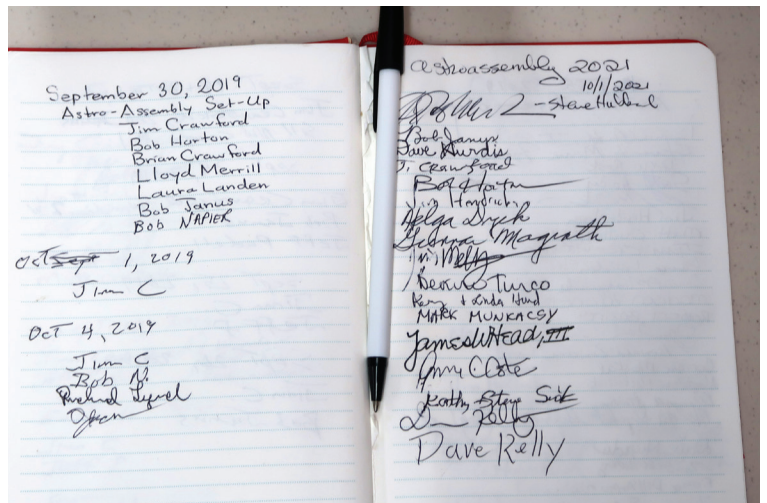 September 30, 2019
Astro-Assembly Set-Up
Jim Crawford
Bob Horton
Brian Crawford
Lloyd Merrill
Laura Landen
Bob Janus
Bob NAPIER
Oct Sept 1, 2019
Jim C
Oct 4, 2019
Jim C
Bob N.
Astroassembly 2021
10/1/2021
- Steve Hubbard
Bob Janus
Dave Hurdis
J. Crawford
Bob Horton
Jim Hendrickson
Helga
Magrath
Turco
Kerry & Linda Hurd
MARK MUNKACSY
James W Head, III
Kathy Steve Siok
Dave Kelly